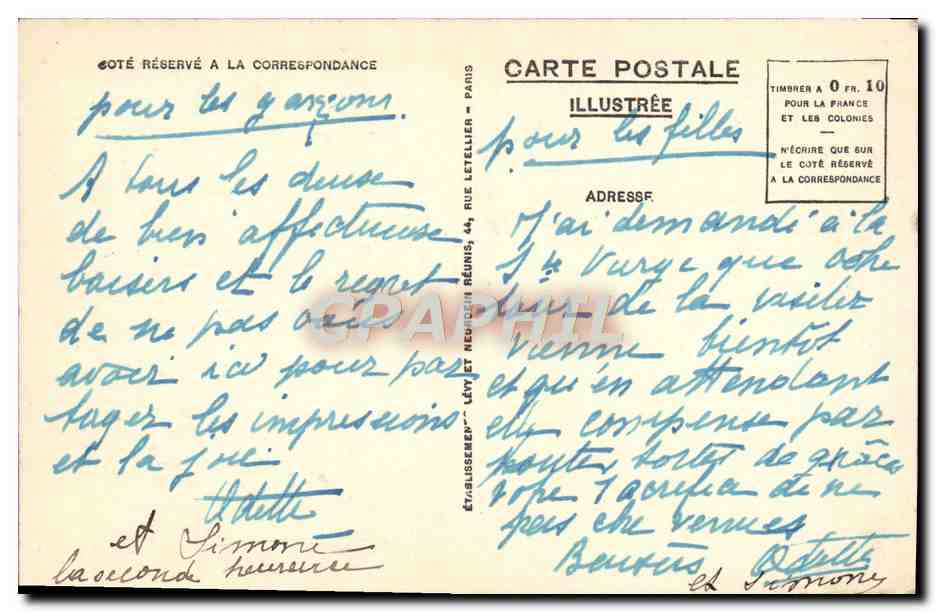 COTÉ RÉSERVÉ A LA CORRESPONDANCE
pour les garçons
A tous les deux
de bien affectueuse
baisers et le regret
de ne pas vous
avoir ici pour par
tager les impressions
et la joie
Odette
et Simone
la seconde heureuse
ÉTABLISSEMENTS LÉVY ET NEURDEIN RÉUNIS, 44, RUE LETELLIER - PARIS
CARTE POSTALE
ILLUSTRÉE
TIMBRER A 0 FR. 10
POUR LA FRANCE
ET LES COLONIES
N'ÉCRIRE QUE SUR
LE COTÉ RÉSERVÉ
A LA CORRESPONDANCE
pour les filles
ADRESSE
J'ai demandé à la
Ste Vierge que votre
tour de la visiter
vienne bientôt
et qu'en attendant
elle compense par
toutes sortes de grâces
votre sacrifice de ne
pas être venues
Baisers Odette
et Simone
CPAPHIL